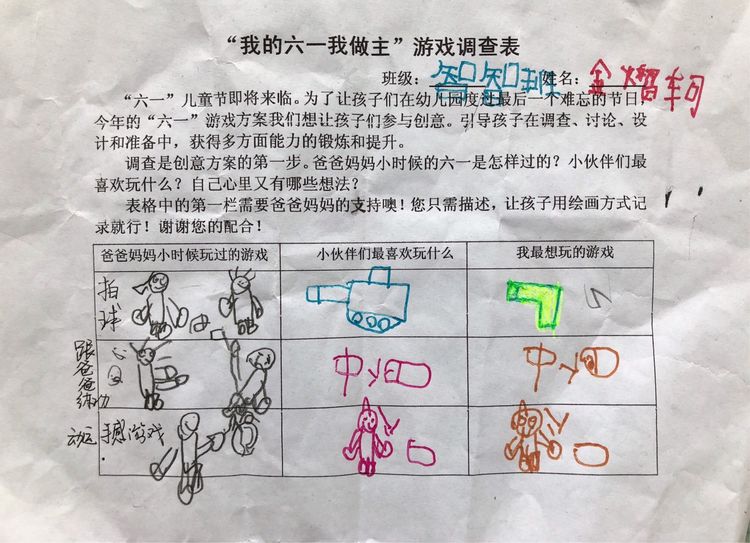 “我的六一我做主”游戏调查表
班级： 智 智 姓名： 金
“六一”儿童节即将来临。为了让孩子们在幼儿园度过最后一个难忘的节日，
今年的“六一”游戏方案我们想让孩子们参与创意。引导孩子在调查、讨论、设
计和准备中，获得多方面能力的锻炼和提升。
调查是创意方案的第一步。爸爸妈妈小时候的六一是怎样过的？小伙伴们最
喜欢玩什么？自己心里又有哪些想法？
表格中的第一栏需要爸爸妈妈的支持噢！您只需描述，让孩子用绘画方式记
录就行！谢谢您的配合！
爸爸妈妈小时候玩过的游戏 小伙伴们最喜欢玩什么 我最想玩的游戏
拍
球
跟
爸
爸
中 中
动运 手 游戏